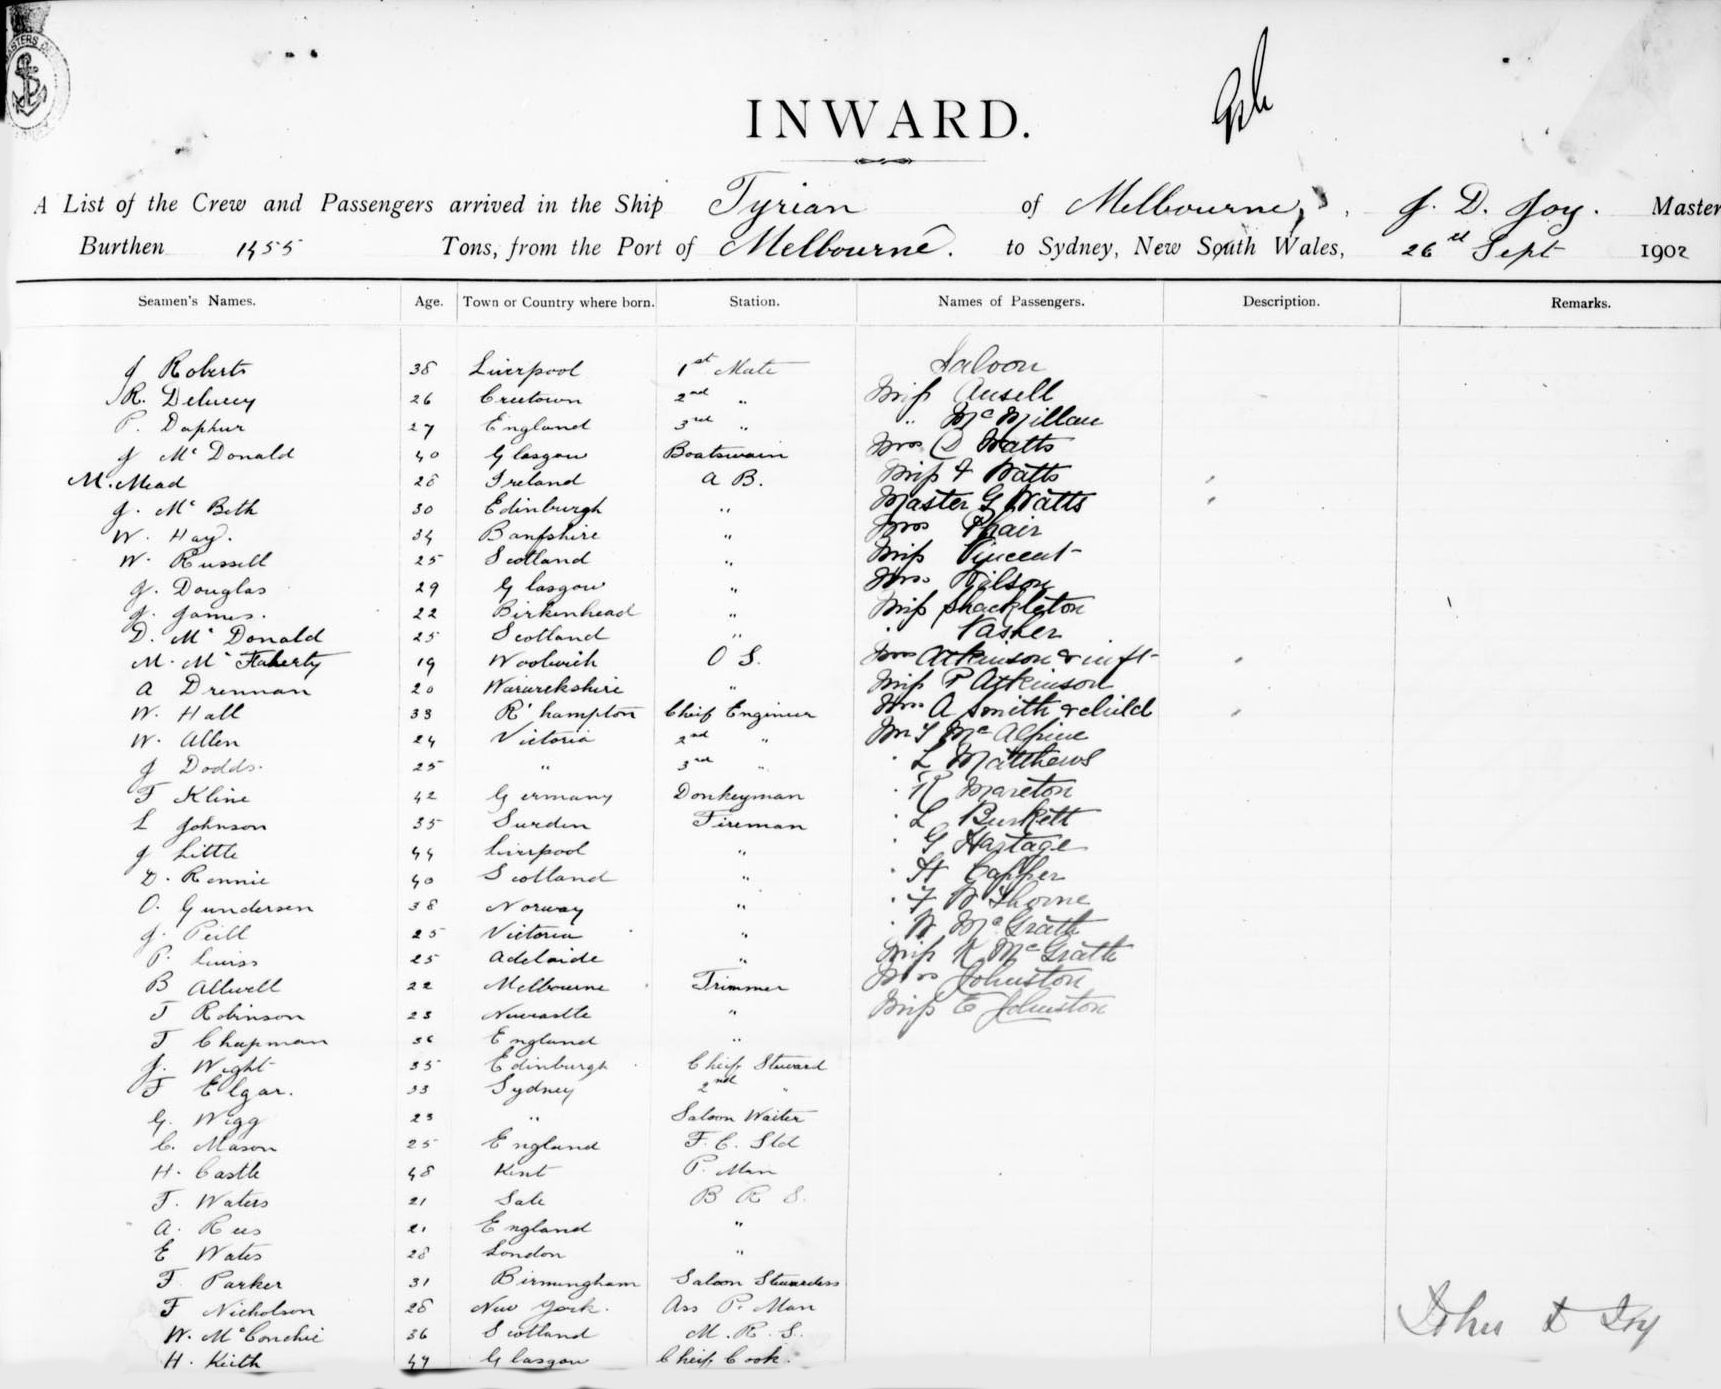 INWARD.
A List of the Crew and Passengers arrived in the Ship Tyrian of Melbourne, J. D. Joy. Master
Burthen 1455 Tons, from the Port of Melbourne. to Sydney, New South Wales, 26th Sept 1902
Seamen's Names. Age. Town or Country where born. Station. Names of Passengers. Description. Remarks.
J Roberts 38 Liverpool 1st Mate Saloon
R. Delucey 26 Creetown 2nd " Miss Ansell
P. Daphur 27 England 3rd " " McMillan
J McDonald 40 Glasgow Boatswain Mrs D Watts
M. Mead 28 Ireland A B. Miss F Watts
J. McBeth 30 Edinburgh " Master G Watts
W. Hay. 34 Banfshire " Mrs Phair
W. Russell 25 Scotland " Miss Vincent
J. Douglas 29 Glasgow " Mrs Gilson
J. James. 22 Birkenhead " Miss Shackleton
D. McDonald 25 Scotland " " Vasher
M. McFlaherty 19 Woolwich O S. Mrs Atkinson & inft
A Drennan 20 Warwickshire " Miss P Atkinson
W. Hall 33 R'hampton Cheif Engineer Mrs A Smith & child
W. Allen 24 Victoria 2nd " Mr T McAlpine
J Dodds. 25 " 3rd " " L Matthews
F Kline 42 Germany Donkeyman " R Mareton
L Johnson 35 Sweden Fireman " L Burkett
J Little 44 Liverpool " " G Hastage
D. Rennie 40 Scotland " " H Capper
O. Gundersen 38 Norway " " F W Thorne
J. Peill 25 Victoria " " W McGrath
P. Lewiss 25 Adelaide " Miss K McGrath
B Allwell 22 Melbourne Trimmer Mrs Johnston
T Robinson 23 Newcastle " Miss E Johnston
T Chapman 36 England "
J. Wight 35 Edinburgh Cheif Steward
F Elgar. 33 Sydney 2nd "
G. Wigg 23 " Saloon Waiter
C. Mason 25 England F. C. Std
H. Castle 48 Kent P. Man
T. Waters 21 Sale B R S.
A. Rees 21 England "
E Wates 28 London "
F Parker 31 Birmingham Saloon Stewardess
F Nicholson 28 New York. Ass P. Man
W. McConchie 36 Scotland M. R. S.
H. Keith 47 Glasgow Cheif Cook.
John D Joy